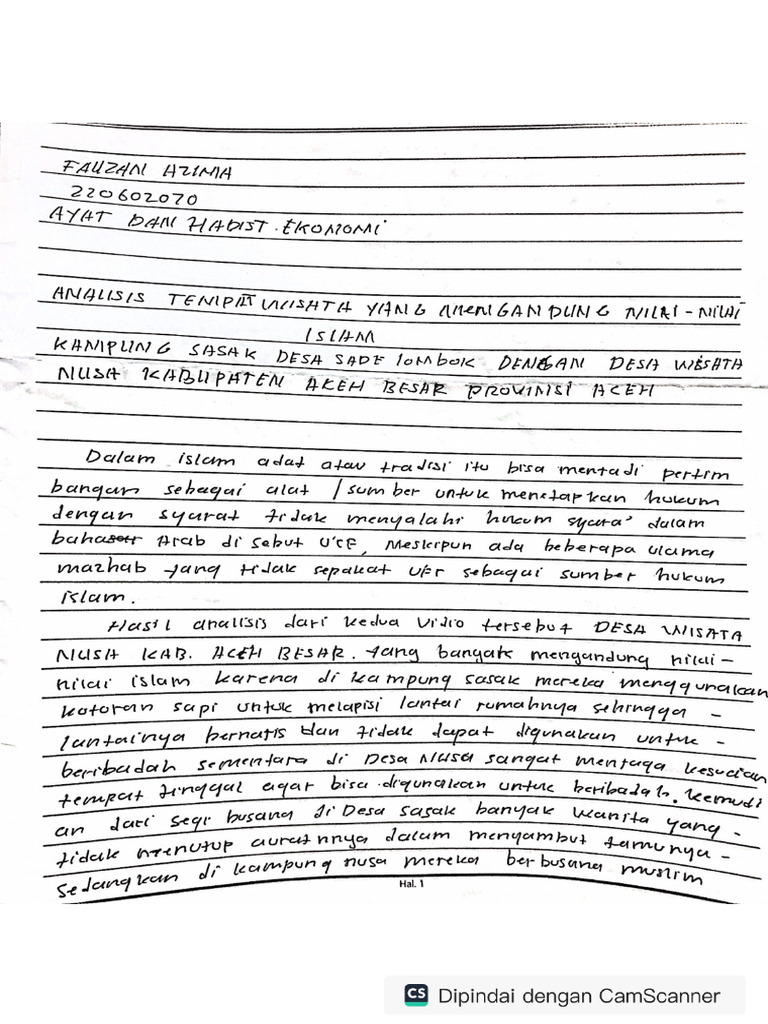 FAUZAN AZIMA
220602070
AYAT DAN HADIST EKONOMI
ANALISIS TEMPAT WISATA YANG MENGANDUNG NILAI-NILAI
ISLAM
KAMPUNG SASAK DESA SADE lOMBOK DENGAN DESA WISATA
NUSA KABUPATEN ACEH BESAR PROVINSI ACEH
Dalam islam adat atau tradisi itu bisa mentadi pertim
bangan sebagai alat / sumber untuk menetapkan hukum
dengan syarat tidak menyalahi hukum syara' dalam
bahasa Arab di sebut U'rF, Meskipun ada beberapa ulama
mazhab yang tidak sepakat UFr sebagai sumber hukum
islam.
Hasil analisis dari kedua Vidio tersebut DESA WISATA
NUSA KAB. ACEH BESAR. yang banyak mengandung nilai-
nilai islam karena di kampung sasak mereka menggunakan
kotoran sapi untuk melapisi lantai rumahnya sehingga -
lantainya bernatis dan tidak dapat digunakan untuk -
beribadah sementara di Desa Nusa sangat mentaga kesucian
tempat tinggal agar bisa digunakan untuk beribadah. kemudi
an dari segi busana di Desa sasak banyak wanita yang -
tidak menutup auratnnya dalam menyambut tamunya -
sedangkan di kampung nusa mereka berbusana muslim
Hal. 1
CS Dipindai dengan CamScanner